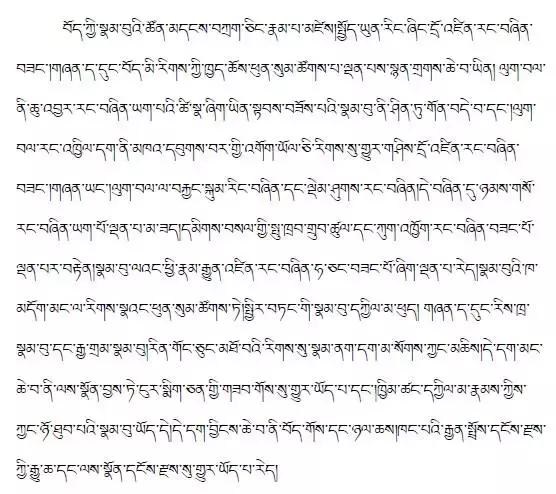 བོད་ཀྱི་སྣམ་བུའི་ཚོན་མདངས་བཀྲག་ཅིང་རྣམ་པ་མཛེས།སྤྱོད་ཡུན་རིང་ཞིང་དྲོ་འཛིན་རང་བཞིན་
བཟང་།གཞན་ད་དུང་བོད་མི་རིགས་ཀྱི་ཁྱད་ཆོས་ཕུན་སུམ་ཚོགས་པ་ལྡན་པས་སྙན་གྲགས་ཆེ་བ་ཡིན། ལུག་བལ་
ནི་ཆུ་འབྱར་རང་བཞིན་ཡག་པའི་ཚི་སྣ་ཞིག་ཡིན་སྟབས་བཟོས་པའི་སྣམ་བུ་ནི་ཤིན་ཏུ་གོན་བདེ་བ་དང་།ལུག་
བལ་རང་འཁྱིལ་དག་ནི་མཁའ་དབུགས་བར་གྱི་འགོག་ཡོལ་ཅི་རིགས་སུ་གྱུར་གཤིས་དྲོ་འཛིན་རང་བཞིན་
བཟང་།གཞན་ཡང་།ལུག་བལ་ལ་བརྐྱང་སྐུམ་རང་བཞིན་དང་ལྡེམ་ཤུགས་རང་བཞིན།དེ་བཞིན་དུ་ཉམས་གསོ་
རང་བཞིན་ཡག་པོ་ལྡན་པ་མ་ཟད།དམིགས་བསལ་གྱི་སྤུ་ཁྲབ་གྲུབ་ཚུལ་དང་ཀུག་འཁྱོག་རང་བཞིན་བཟང་པོ་
ལྡན་པར་བརྟེན།སྣམ་བུ་ལའང་ཕྱི་རྣམ་རྒྱུན་འཛིན་རང་བཞིན་ཧ་ཅང་བཟང་པོ་ཞིག་ལྡན་པ་རེད།སྣམ་བུའི་ཁ་
མདོག་མང་ལ་རིགས་སྣའང་ཕུན་སུམ་ཚོགས་ཏེ།སྤྱིར་བཏང་གི་སྣམ་བུ་དཀྱིལ་མ་ཕུད། གཞན་ད་དུང་རིས་ཁྲ་
སྣམ་བུ་དང་རྒྱ་གྲམ་སྣམ་བུ།རིན་གོང་ཅུང་མཐོ་བའི་རིགས་སུ་སྣམ་ནག་དག་མ་སོགས་ཀྱང་མཆིས།དེ་དག་མང་
ཆེ་བ་ནི་ལས་སྣོན་བྱས་ཏེ་དུར་སྨིག་ཅན་གྱི་གཟབ་གོས་སུ་གྱུར་ཡོད་པ་དང་།ཁྱིམ་ཚང་དཀྱིལ་མ་རྣམས་ཀྱིས་
ཀྱང་ཉོ་ཐུབ་པའི་སྣམ་བུ་ཡོད་དེ།དེ་དག་ཕྱིངས་ཆེ་བ་ནི་བོད་གོས་དང་ཉལ་ཆས།ཁང་པའི་རྒྱན་སྤྲོས་དངོས་རྫས་
ཀྱི་རྒྱུ་ཆ་དང་ལས་སྣོན་དངོས་རྫས་སུ་གྱུར་ཡོད་པ་རེད།